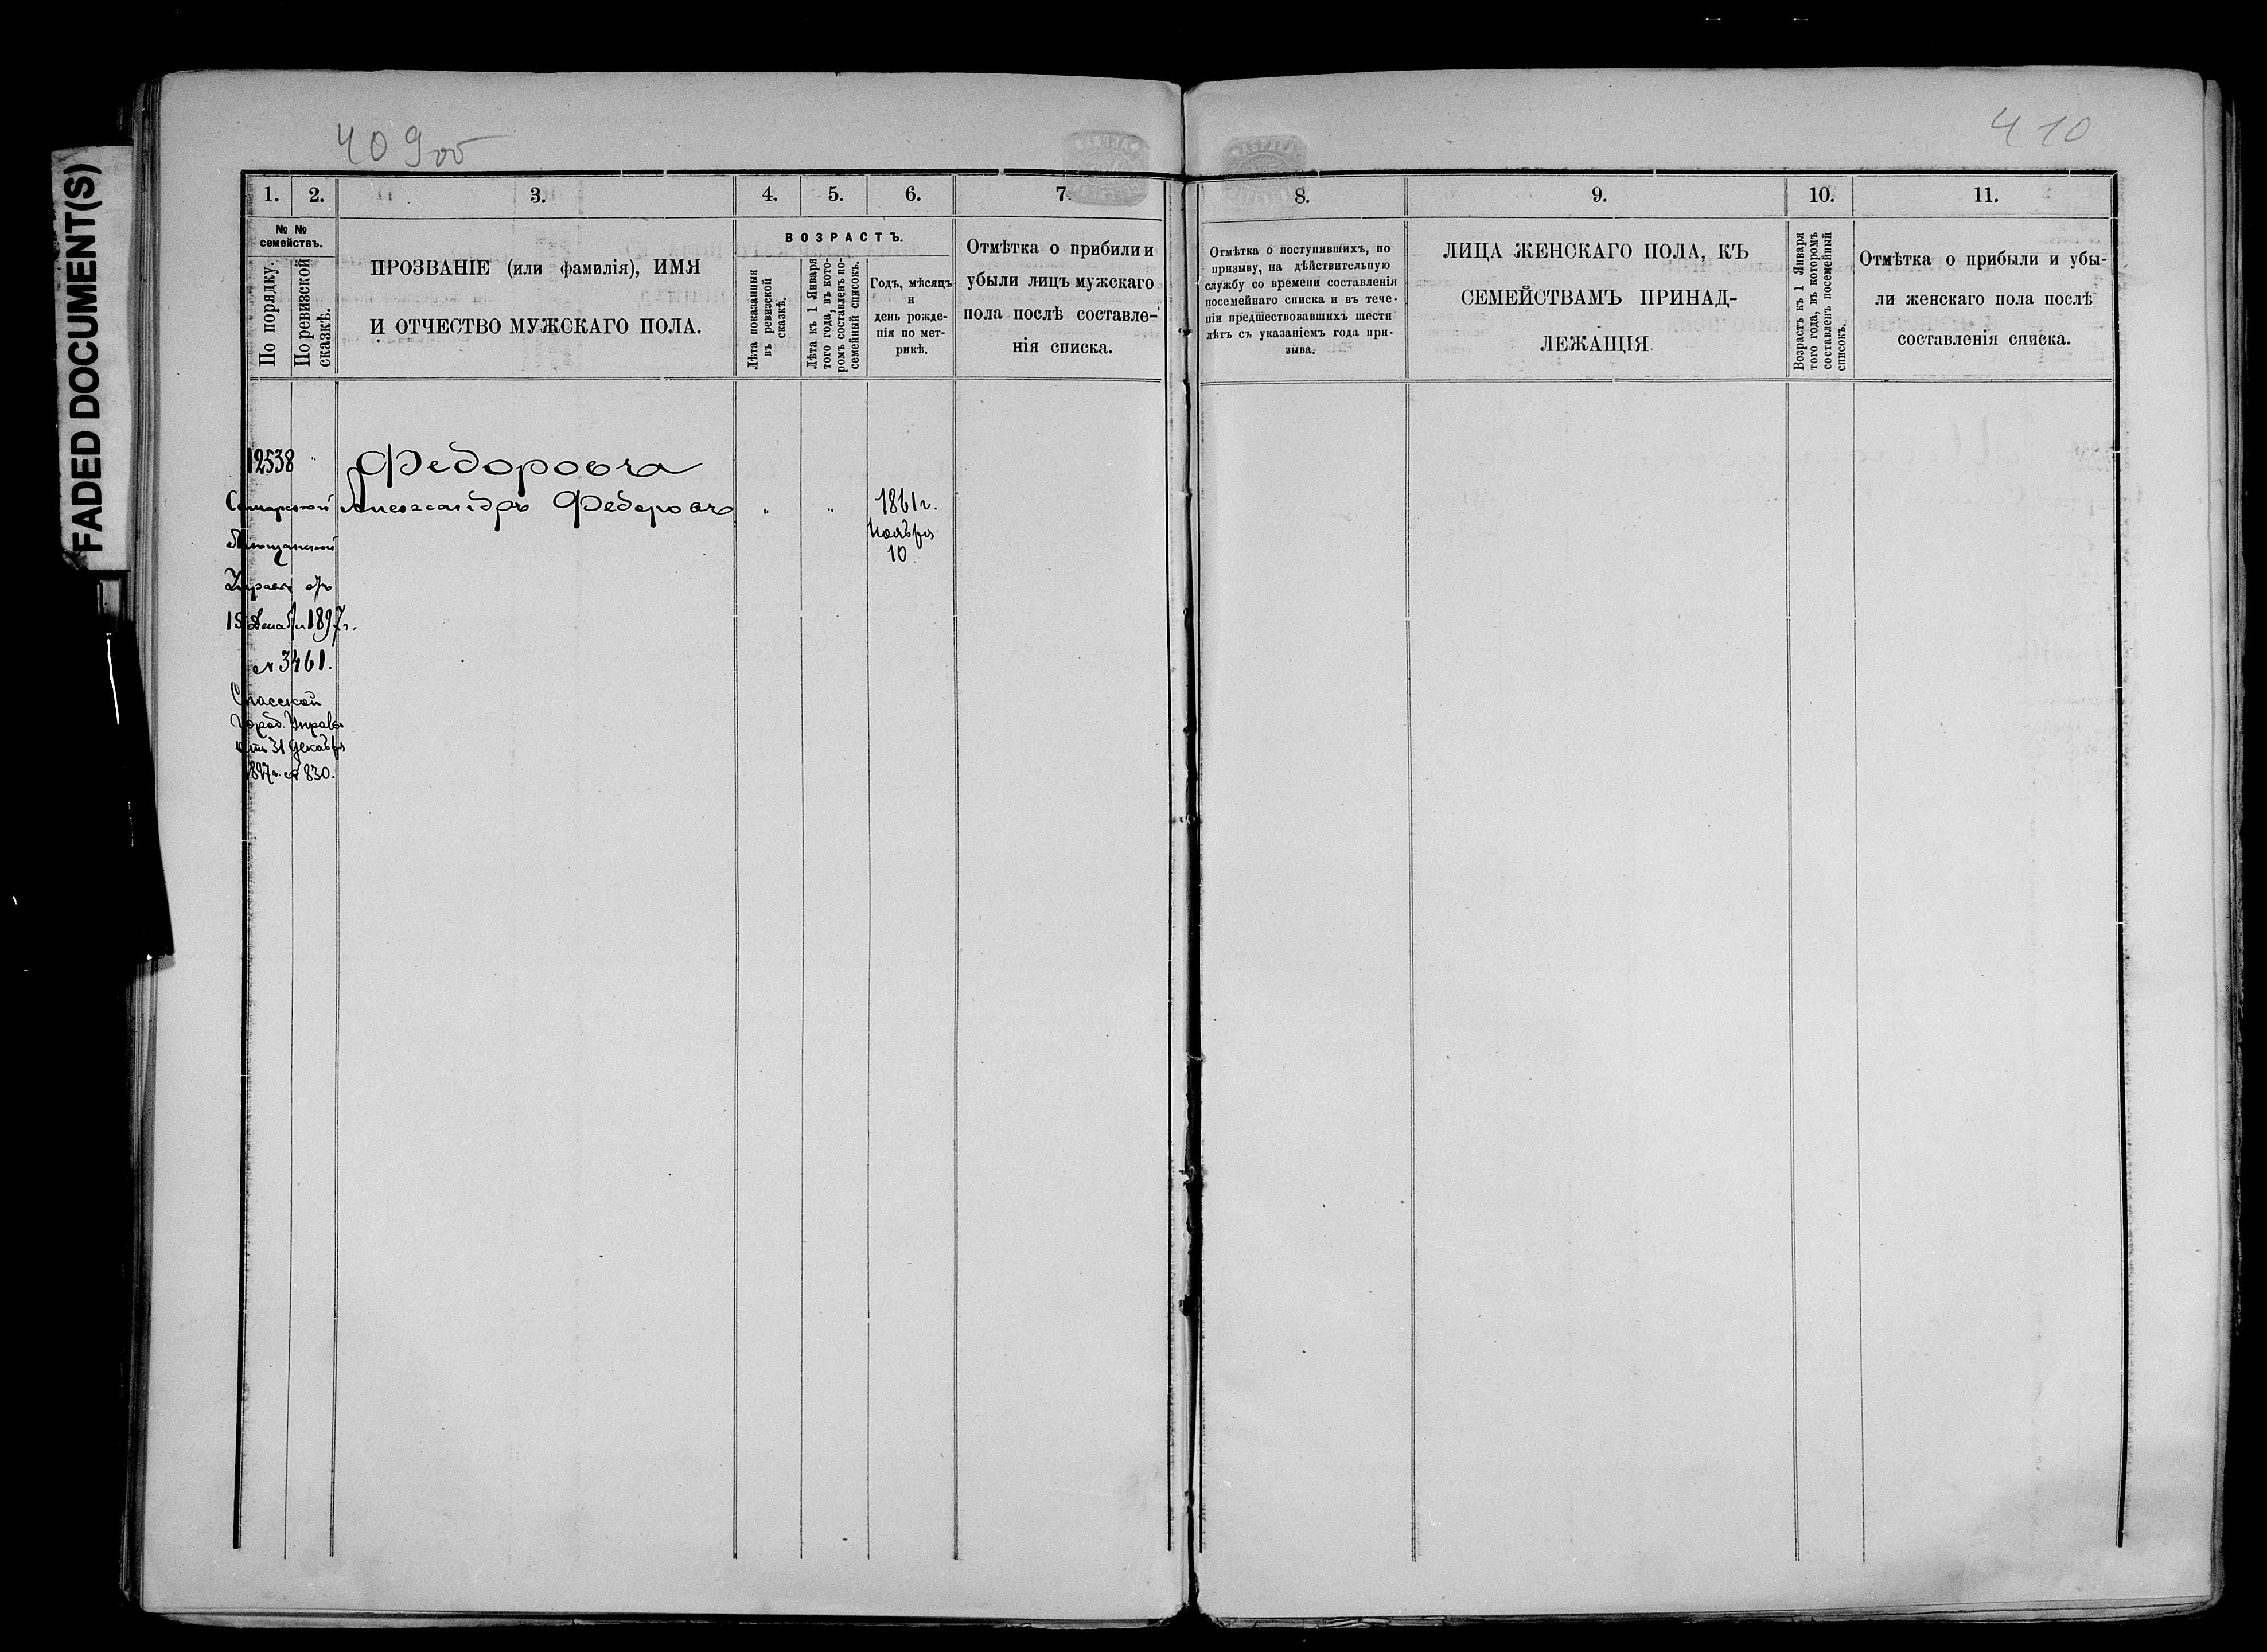 FADED DOCUMENT(S)
409об
410
1. 2. 3. 4. 5. 6. 7.
№ № семействъ.
По порядку.
По ревизской сказкѣ.
ПРОЗВАНІЕ (или фамилія), ИМЯ
И ОТЧЕСТВО МУЖСКАГО ПОЛА.
ВОЗРАСТЪ.
Лѣта показанныя
въ ревизской
сказкѣ.
Лѣта къ 1 Января
того года, въ кото-
ромъ составленъ по-
семейный списокъ.
Годъ, мѣсяцъ
и
день рожде-
нія по мет-
рикѣ.
Отмѣтка о прибили и
убыли лицъ мужскаго
пола послѣ составле-
нія списка.
12538 "
Федоровъ
Александръ Федоровъ " " 1861 г.
Ноября
10
Самарской
Мѣщанской
Управы отъ
15 Декабря 1897 г.
№ 3461.
Спасской
Город. Управы
отъ 31 Декабря
1897 г. № 830.
8. 9. 10. 11.
Отмѣтка о поступившихъ, по
призыву, на дѣйствительную
службу со времени составленія
посемейнаго списка и въ тече-
ніи предшествовавшихъ шести
лѣтъ съ указаніемъ года при-
зыва.
ЛИЦА ЖЕНСКАГО ПОЛА, КЪ
СЕМЕЙСТВАМЪ ПРИНАД-
ЛЕЖАЩІЯ
Возрастъ къ 1 Января
того года, въ которомъ
составленъ посемейный
списокъ.
Отмѣтка о прибыли и убы-
ли женскаго пола послѣ
составленія списка.